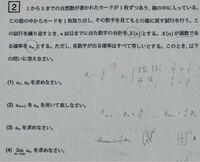 2 1から5までの自然数が書かれたカードが1枚ずつあり、箱の中に入っている。
この箱の中からカードを1枚取り出し、その数字を見てもとの箱に戻す試行を行う。こ
の試行を繰り返すとき、n回目までに出た数字の合計をX(n)とする。X(n)が偶数であ
る確率をaₙとする。ただし、各数字が出る確率はすべて等しいとする。このとき、以下
の問いに答えなさい。
(1) a₁, a₂を求めなさい。
(2) aₙ₊₁をaₙを用いて表しなさい。
(3) aₙを求めなさい。
(4) lim aₙを求めなさい。
n→∞